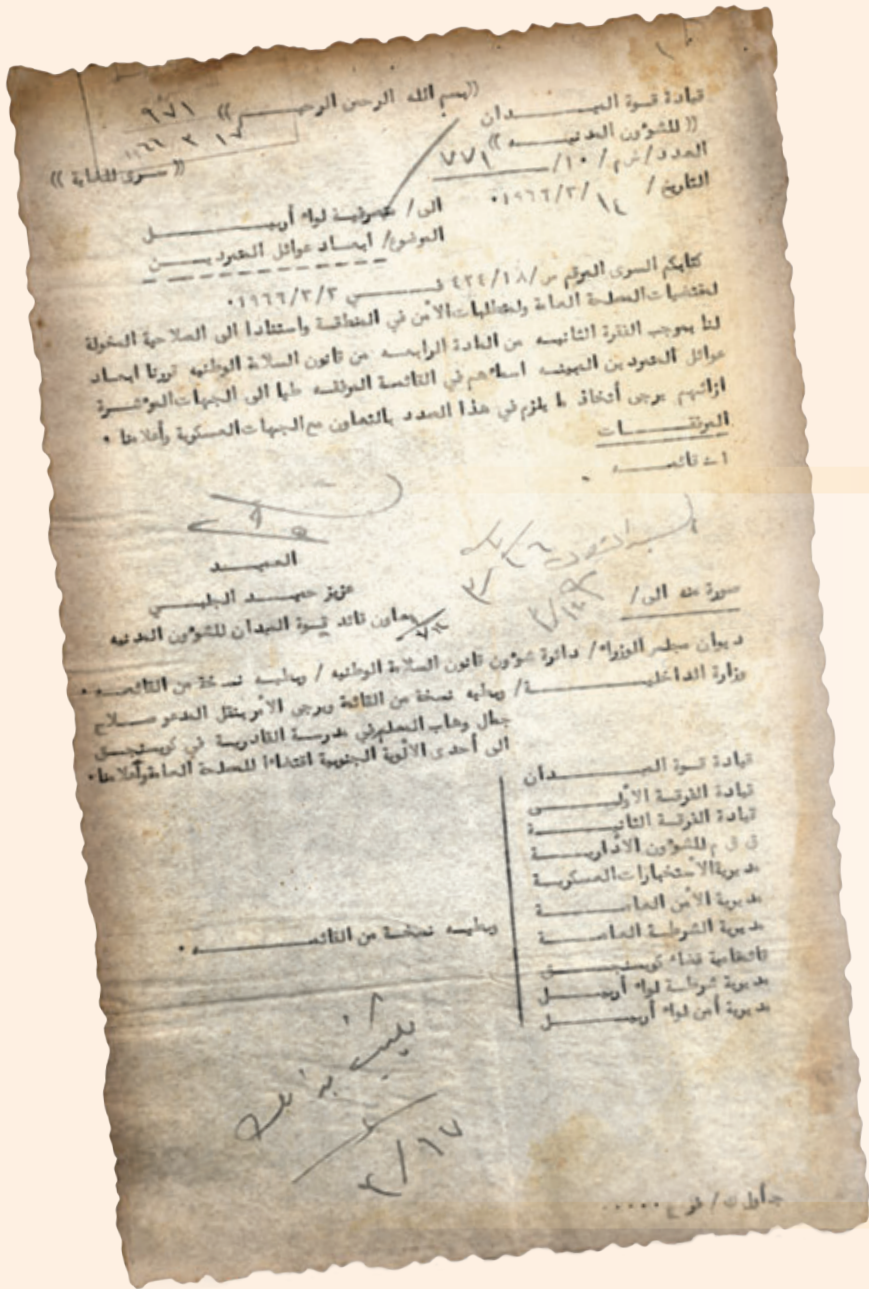 ((بسم الله الرحمن الرحيم)) ٩٧١
قيادة قوة الميدان
((للشؤون المدنيه))
((سرى للغاية))
العدد/ش م/١٠/ ٧٧١
التاريخ/ ١٤/٣/١٩٦٦٠
الى/ متصرفية لواء أربيل
الموضوع/ ابعاد عوائل المتمردين
كتابكم السرى المرقم س/٤٢٤/١٨ في ١٩٦٦/٣/٣٠
لمقتضيات المصلحة العامة ولمتطلبات الأمن في المنطقة واستنادا الى الصلاحية المخولة
لنا بموجب الفقرة الثانيه من المادة الرابعه من قانون السلامة الوطنيه قررنا ابعاد
عوائل المتمردين المبينه اسمائهم في القائمة المرفقه طيا الى الجهات المؤشرة
ازائهم يرجى أتخاذ ما يلزم في هذا الصدد بالتعاون مع الجهات العسكرية وأعلامنا ٠
المرفقات
١ـ قائمه ٠
العميد
عزيز حميد الجلبي
معاون قائد قوة الميدان للشؤون المدنيه
صورة منه الى/
ديوان مجلس الوزراء/ دائرة شؤون قانون السلامة الوطنيه / وبطيه نسخة من القائمه ٠
وزارة الداخلية/ وبطيه نسخة من القائمة ويرجى الأمر بنقل المدعو صلاح
جمال وهاب المعلم في مدرسة القادرية في كويسنجق
الى أحدى الألوية الجنوبية اقتضاءا للمصلحة العامة وأعلامنا ٠
قيادة قوة الميدان
قيادة الفرقة الأولى
قيادة الفرقة الثانية
ق ق م للشؤون الأدارية
مديرية الأستخبارات العسكرية
مديرية الأمن العامة
مديرية الشرطة العامة
وبطيه نسخة من القائمه ٠
قائمقامية قضاء كويسنجق
مديرية شرطة لواء أربيل
مديرية أمن لواء أربيل
٣/١٧